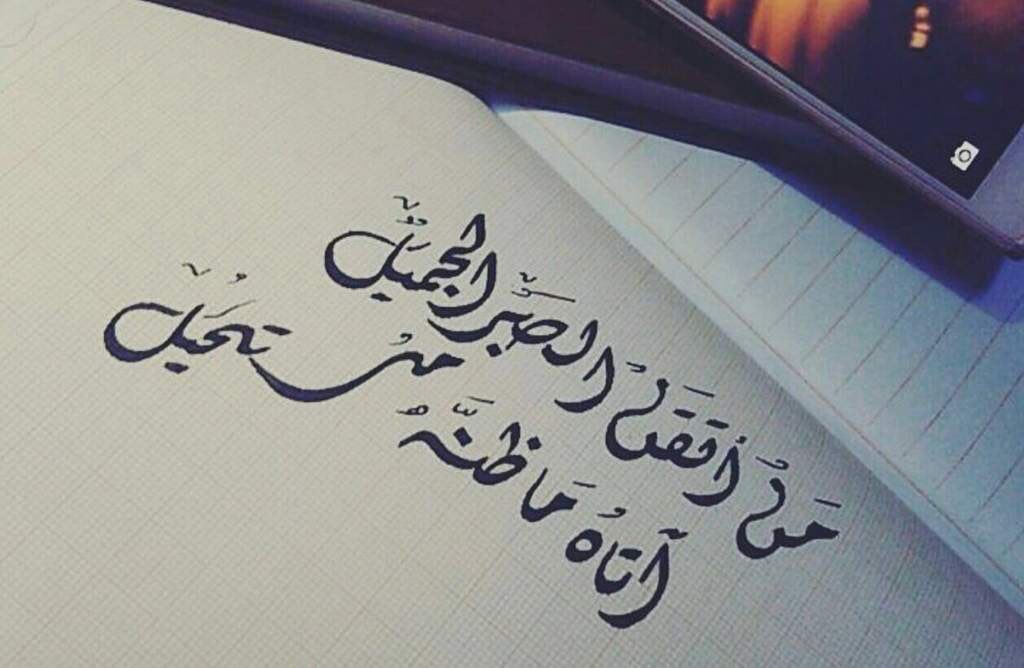 مَنْ أتقَنْ الصَّبْر الجميَل
أتاهُ مَا ظنَّهُ مُستحُيَل